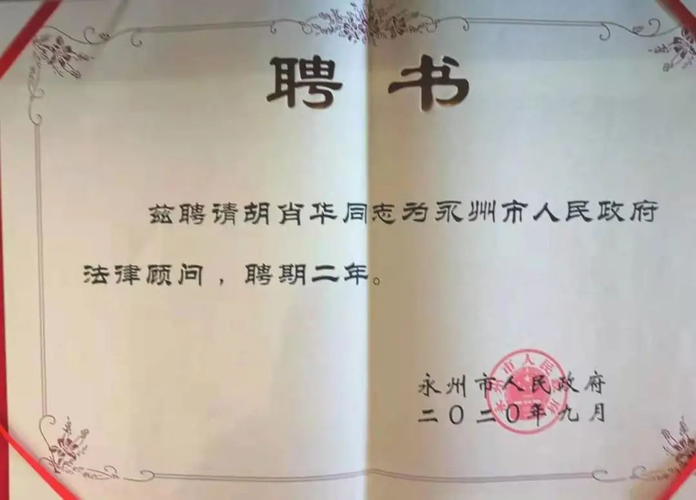 聘书
兹聘请胡肖华同志为永州市人民政府
法律顾问，聘期二年。
永州市人民政府
二〇二〇年九月